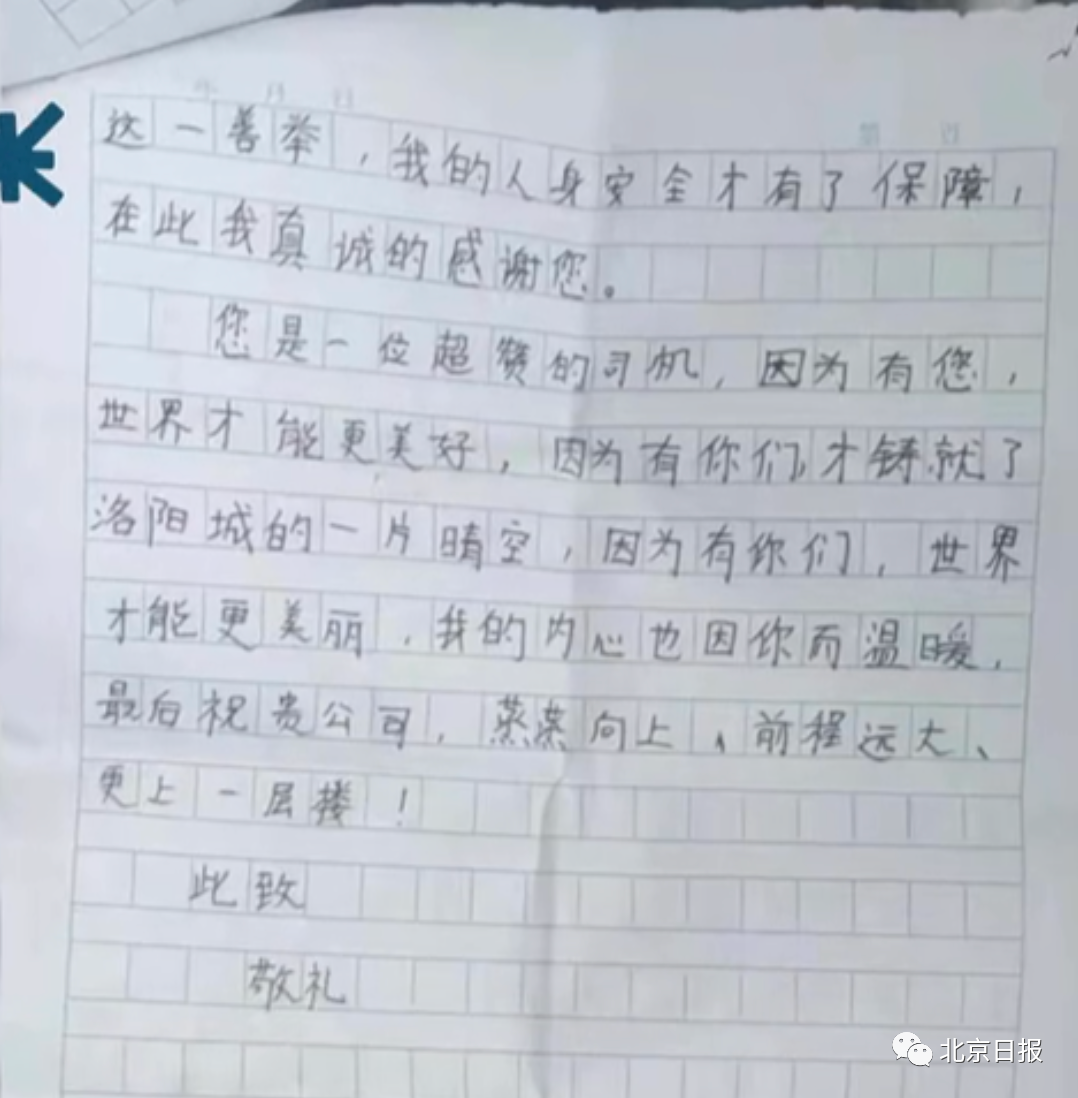 年 月 日
第 页
这一善举，我的人身安全才有了保障，
在此我真诚的感谢您。
您是一位超赞的司机，因为有您，
世界才能更美好，因为有你们，才铸就了
洛阳城的一片晴空，因为有你们，世界
才能更美丽，我的内心也因你而温暖，
最后祝贵公司，蒸蒸向上、前程远大、
更上一层楼！
此致
敬礼
北京日报